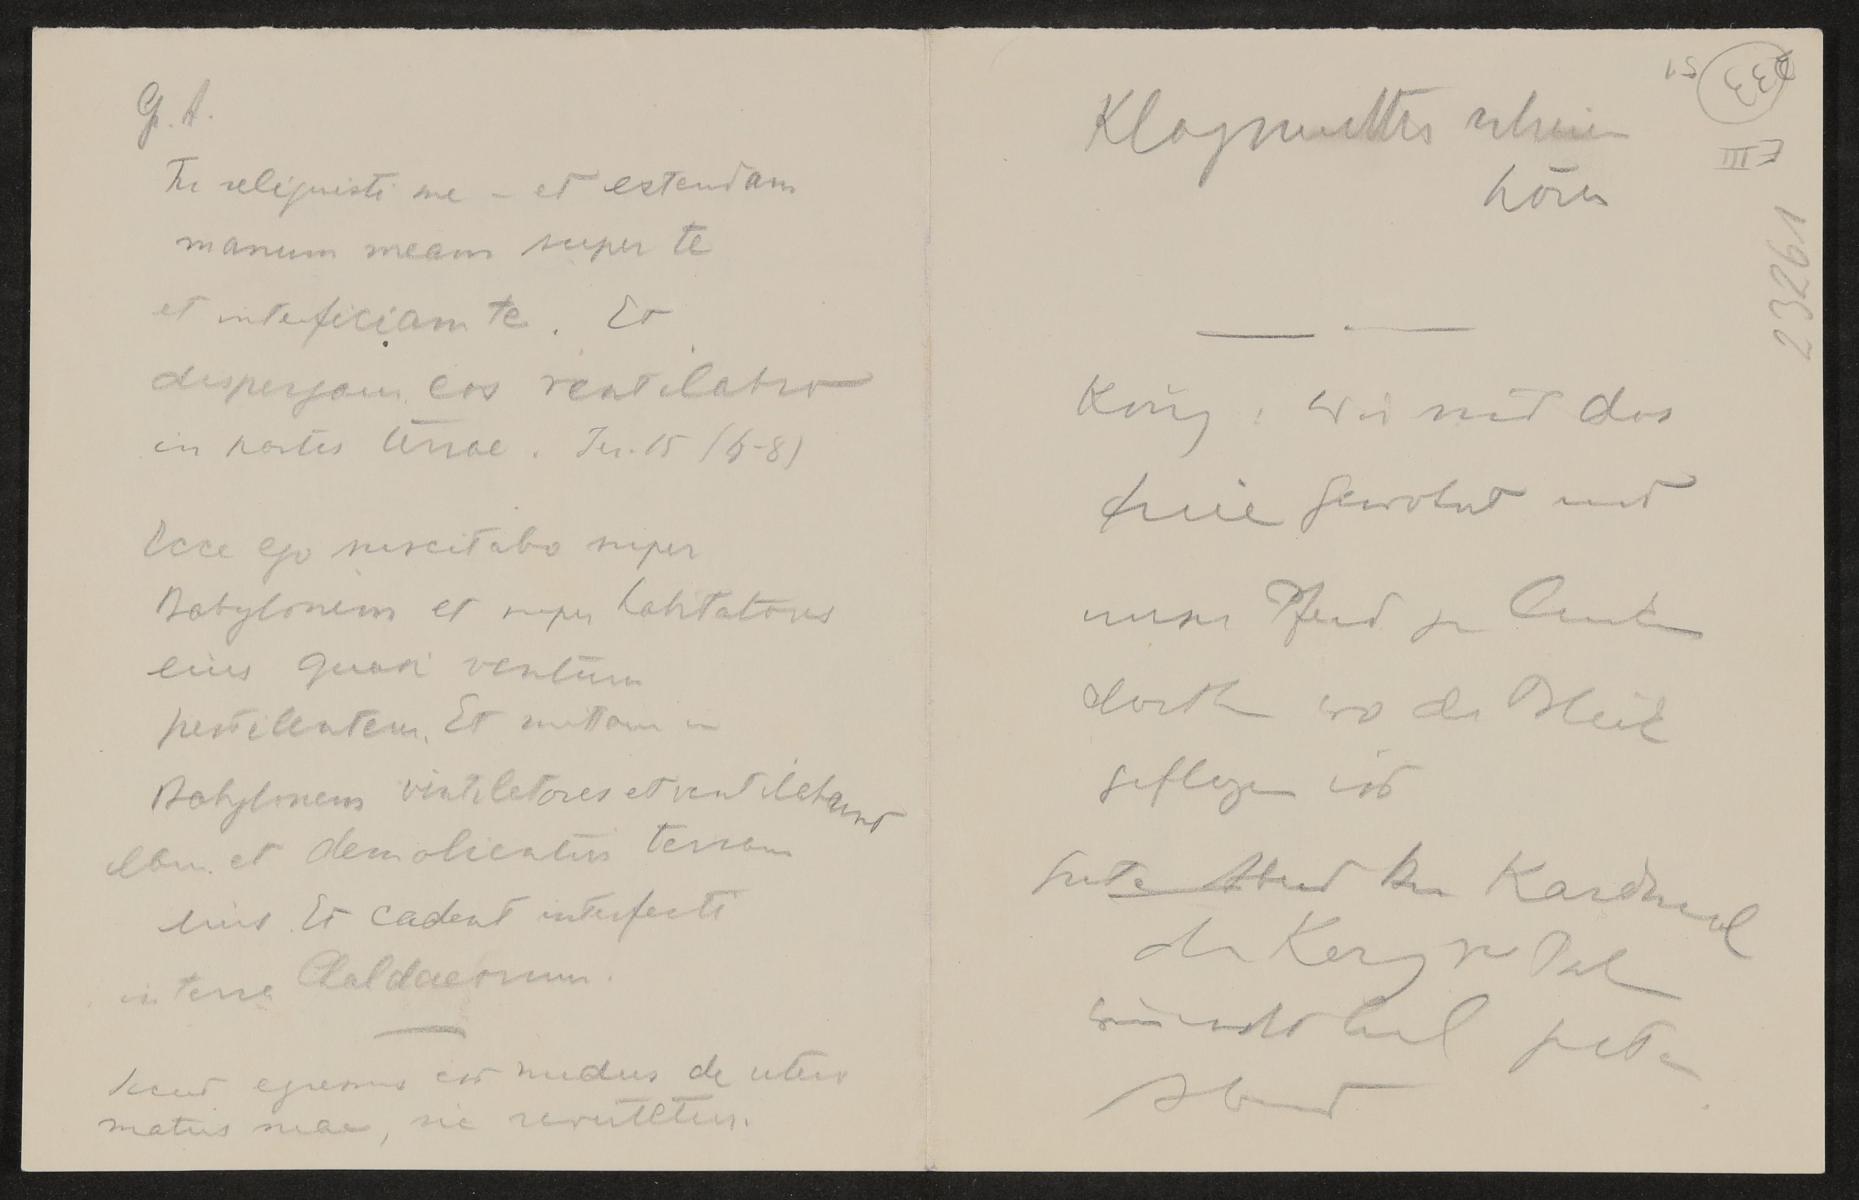 G. A.
Tu reliquisti me – et extendam
manum meam super te
et interficiam te. Et
dispergam eos ventilabro
in portis terrae. Jer. 15 (6-8)
Ecce ego suscitabo super
Babylonem et super habitatores
eius quasi ventum
pestilentem. Et mittam in
Babylonem ventilatores et ventilabunt
eam et demolientur terram
eius. Et cadent interfecti
in terra Chaldaeorum.
sicut egressus est nudus de utero
matris suae, sic revertetur.
15 233
III 7
23261
hören
König: Wir sind das
gewohnt und
unser Pferd zu
dorthin wo der Blick
geflogen ist
Guten Abend Herr Kardinal
der
wünscht
Abend